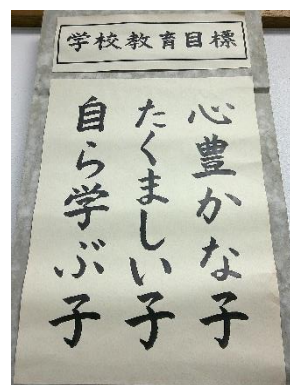 学校教育目標
心豊かな子
たくましい子
自ら学ぶ子